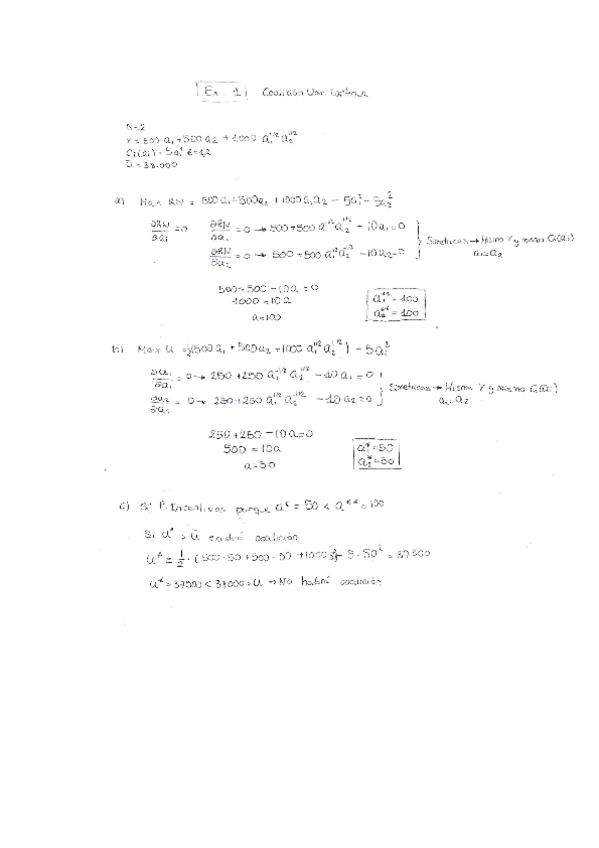 Ex. 1 Coalición Var. Continua
n=2
Y = 500 a₁ + 500 a₂ + 1000 a₁^1/2 a₂^1/2
Ci(ai) = 5ai² i=1,2
Ū = 38.000
a) Max RN = 500 a₁ + 500a₂ + 1000 a₁ a₂ - 5a₁² - 5a₂²
∂RN/∂ai = 0 ∂RN/∂a₁ = 0 → 500 + 500 a₁^-1/2 a₂^1/2 - 10a₁ = 0
∂RN/∂a₂ = 0 → 500 + 500 a₁^1/2 a₂^-1/2 - 10a₂ = 0
Simétricos → Mismo Y y mismo Ci(ai)
a₁=a₂
500 + 500 - 10a = 0
1000 = 10a
a=100
a₁** = 100
a₂** = 100
b) Max U = ½(500a₁ + 500a₂ + 1000 a₁^1/2 a₂^1/2) - 5a₁²
= 0 → 250 + 250 a₁^-1/2 a₂^1/2 - 10a₁ = 0
= 0 → 250 + 250 a₁^1/2 a₂^-1/2 - 10a₂ = 0
Simétricos → Mismo Y y mismo Ci(ai)
a₁=a₂
250 + 250 - 10a = 0
500 = 10a
a=50
a₁* = 50
a₂* = 50
c) Sí P. Incentivos porque a* = 50 < a** = 100
Si U* > Ū coalición
U* = 1/2 · (500·50 + 500·50 + 1000·50) - 5·50² = 37500
U* = 37500 < = Ū → No habrá coalición